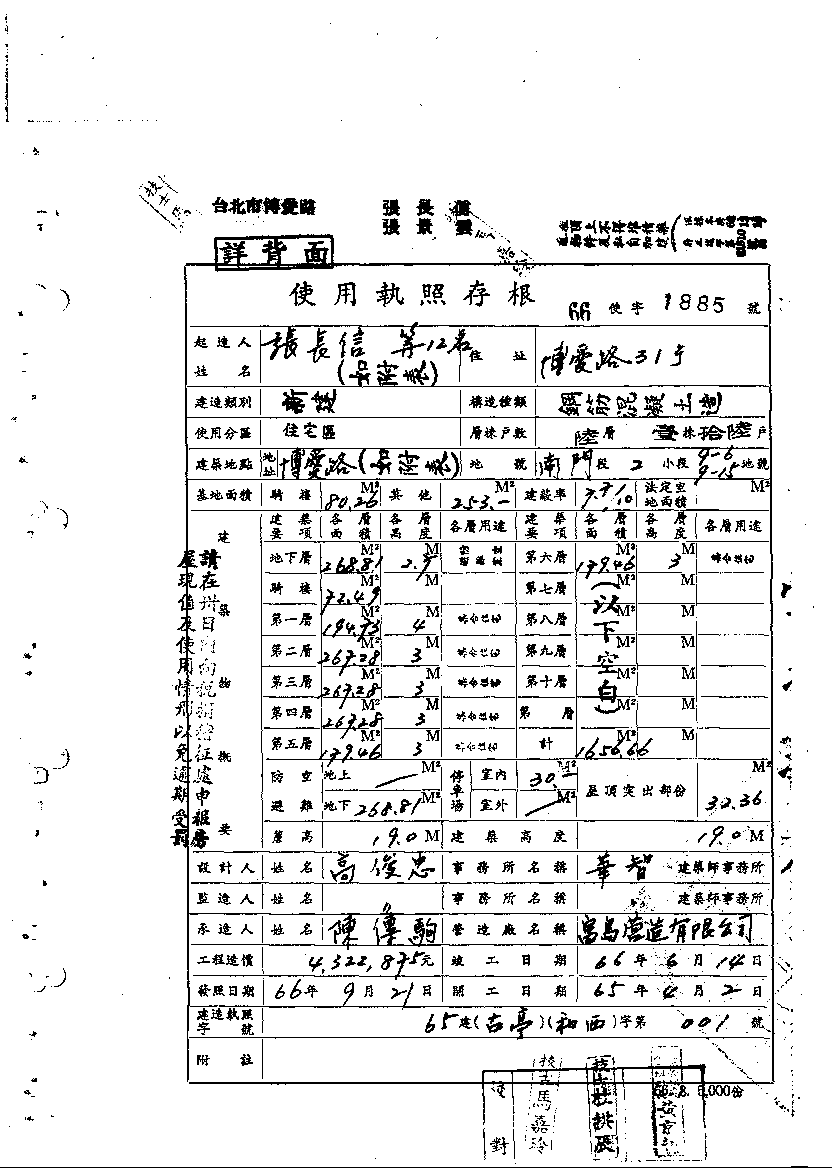 台北市博愛路
張長信
張景雲
詳背面
使用執照存根
66 使字 1885 號
起造人姓名 張長信 等12名 (如附表) 住址 博愛路31号
建造類別 新建 構造種類 鋼筋混凝土造
使用分區 住宅區 層棟戶數 陸層 壹棟 拾陸戶
建築地點 地址 博愛路(如附表) 地號 南門段 2 小段 9-6 9-15 地號
基地面積 騎樓 80.26 M² 其他 253.- M² 建蔽率 法定空地面積 M²
建築物概要
建築要項 各層面積 各層高度 各層用途 建築要項 各層面積 各層高度 各層用途
地下層 268.81 M² 2.9 M 第六層 179.46 M² 3 M
騎樓 72.49 M² M 第七層 M² M
第一層 194.73 M² 4 M 第八層 M² M
第二層 267.28 M² 3 M 第九層 M² M
第三層 267.28 M² 3 M 第十層 M² M
第四層 267.28 M² 3 M 第 層 M² M
第五層 179.46 M² 3 M 計 1656.66 M² M
(以下空白)
防空避難 地上 M² 地下 268.81 M² 停車場 室內 30.- M² 室外 M² 屋頂突出部份 32.36 M²
簷高 19.0 M 建築高度 19.0 M
設計人 姓名 高俊忠 事務所名稱 華智 建築師事務所
監造人 姓名 事務所名稱 建築師事務所
承造人 姓名 陳傳駒 營造廠名稱 富島營造有限公司
工程造價 4,322,875元 竣工日期 66年6月14日
發照日期 66年9月21日 開工日期 65年4月2日
建造執照字號 65建(古亭)(和西)字第 001 號
附註
請在卅日內向稅捐稽征處申報房
屋現值及使用情形以免逾期受罰
校對
技士馬嘉玲
66.8.5,000份